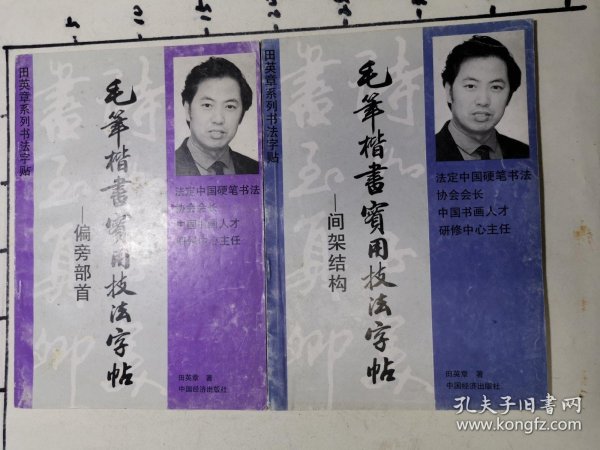 田英章系列书法字贴
毛筆楷書實用技法字帖
—偏旁部首
法定中国硬笔书法
协会会长
中国书画人才
研修中心主任
田英章 著
中国经济出版社
田英章系列书法字贴
毛筆楷書實用技法字帖
—间架结构
法定中国硬笔书法
协会会长
中国书画人才
研修中心主任
田英章 著
中国经济出版社
孔夫子旧书网
www.kongfz.com